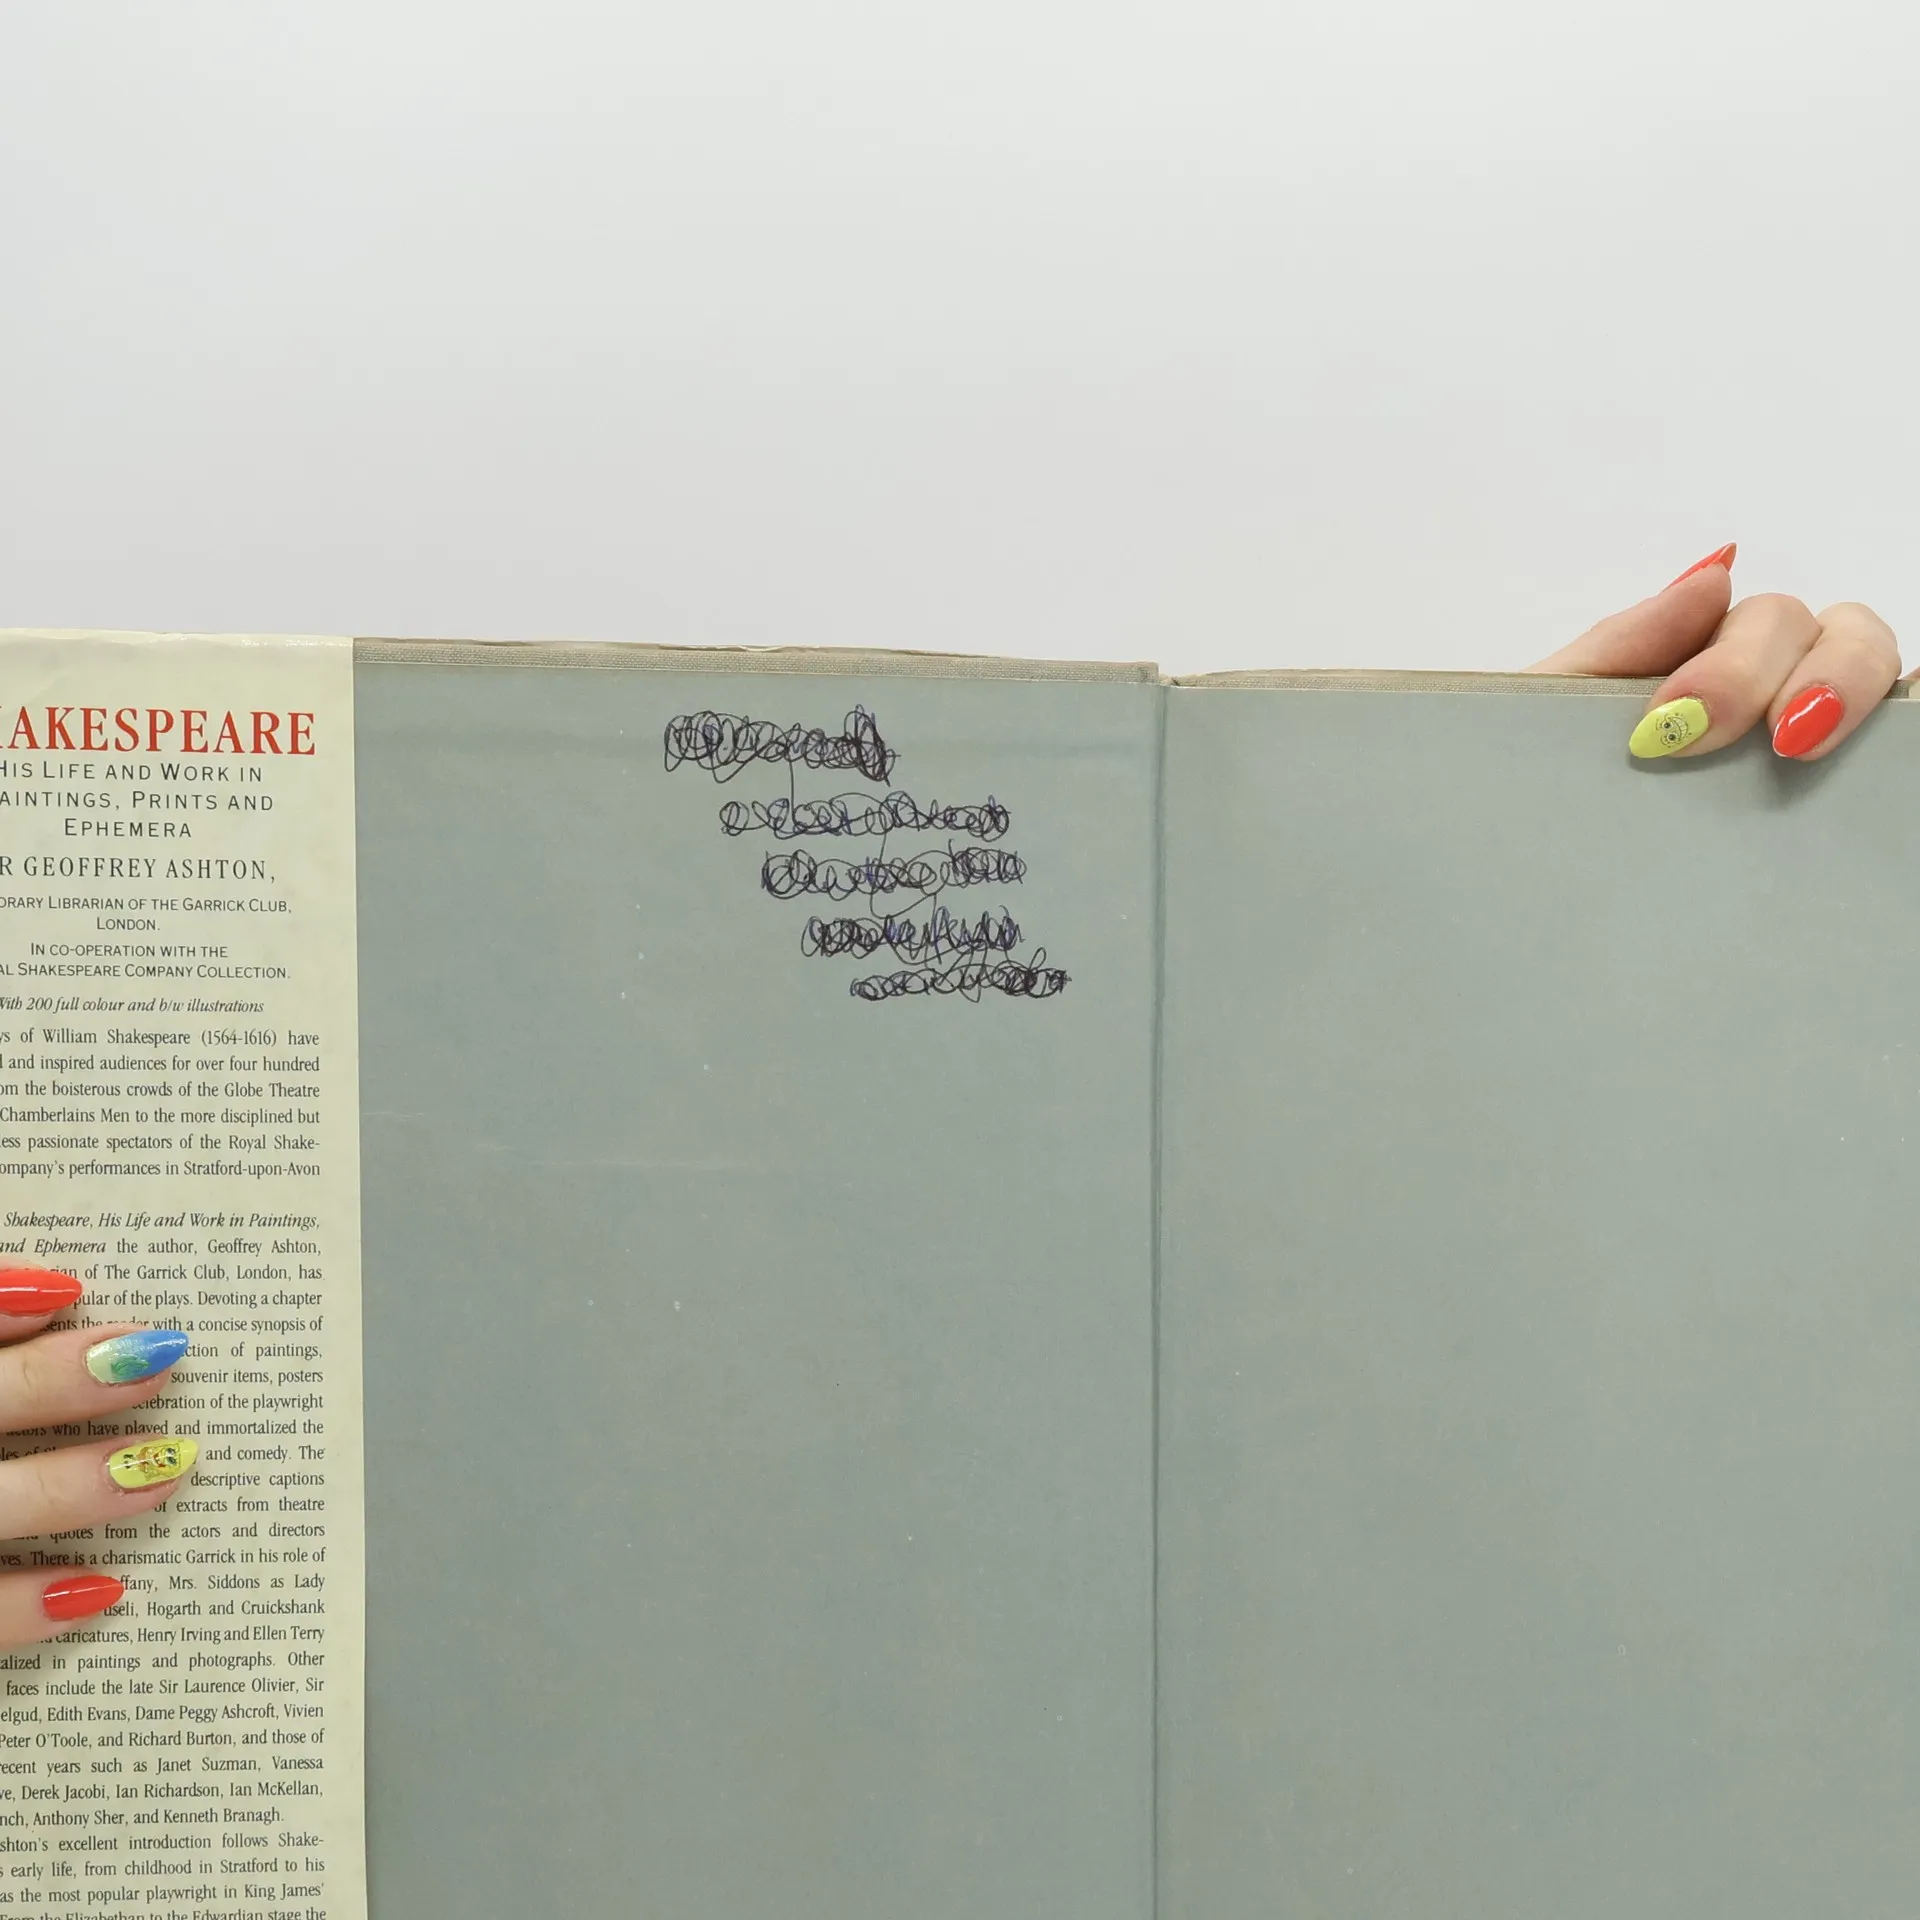 HAKESPEARE
HIS LIFE AND WORK IN
AINTINGS, PRINTS AND
EPHEMERA
R GEOFFREY ASHTON,
ORARY LIBRARIAN OF THE GARRICK CLUB,
LONDON.
IN CO-OPERATION WITH THE
AL SHAKESPEARE COMPANY COLLECTION.
With 200 full colour and b/w illustrations
ys of William Shakespeare (1564-1616) have
and inspired audiences for over four hundred
om the boisterous crowds of the Globe Theatre
Chamberlains Men to the more disciplined but
ess passionate spectators of the Royal Shake-
ompany's performances in Stratford-upon-Avon
Shakespeare, His Life and Work in Paintings,
and Ephemera the author, Geoffrey Ashton,
of The Garrick Club, London, has
pular of the plays. Devoting a chapter
ents the with a concise synopsis of
ction of paintings,
souvenir items, posters
elebration of the playwright
actors who have played and immortalized the
and comedy. The
descriptive captions
of extracts from theatre
quotes from the actors and directors
ves. There is a charismatic Garrick in his role of
ffany, Mrs. Siddons as Lady
useli, Hogarth and Cruickshank
caricatures, Henry Irving and Ellen Terry
alized in paintings and photographs. Other
faces include the late Sir Laurence Olivier, Sir
elgud, Edith Evans, Dame Peggy Ashcroft, Vivien
Peter O'Toole, and Richard Burton, and those of
recent years such as Janet Suzman, Vanessa
ve, Derek Jacobi, Ian Richardson, Ian McKellan,
nch, Anthony Sher, and Kenneth Branagh.
shton's excellent introduction follows Shake-
s early life, from childhood in Stratford to his
as the most popular playwright in King James'
From the Elizabethan to the Edwardian stage the